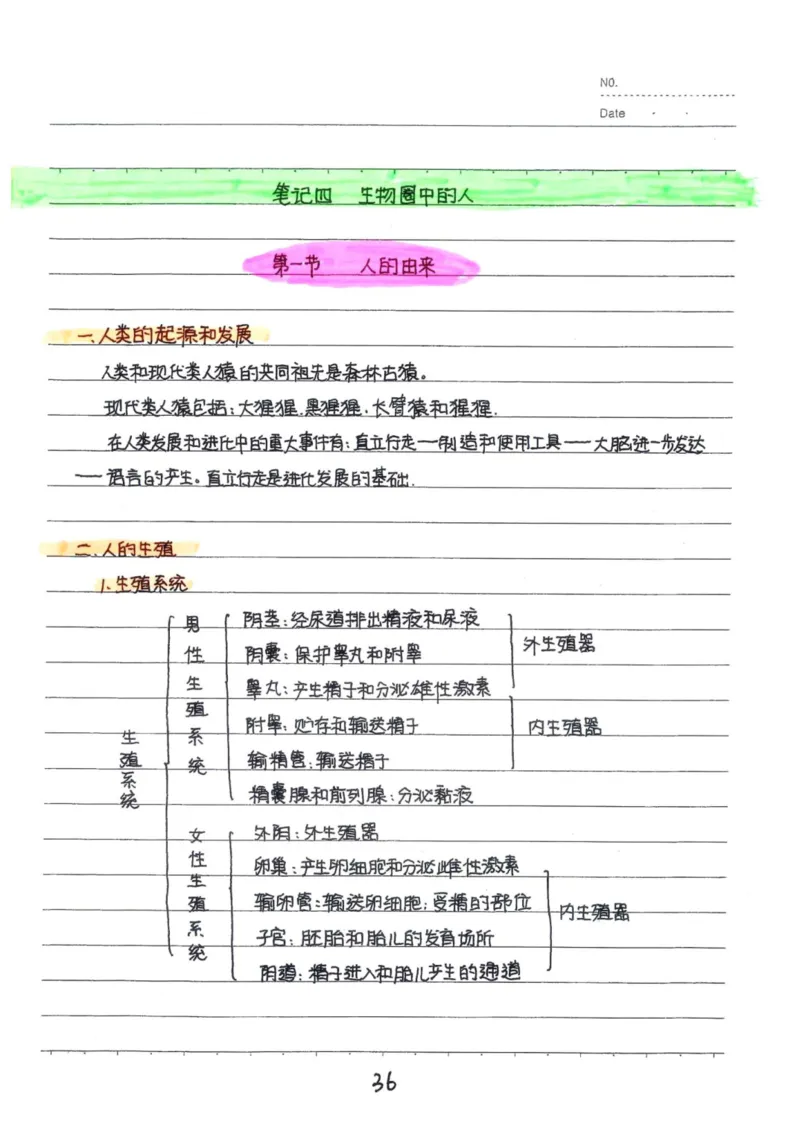 NO.
Date
笔记四 生物圈中的人
第一节 人的由来
一、人类的起源和发展
人类和现代类人猿的共同祖先是森林古猿。
现代类人猿包括：大猩猩、黑猩猩、长臂猿和猩猩.
在人类发展和进化中的重大事件有：直立行走—制造和使用工具—大脑进一步发达
—语言的产生。直立行走是进化发展的基础.
二、人的生殖
1.生殖系统
生殖系统
男性生殖系统
阴茎：经尿道排出精液和尿液
阴囊：保护睾丸和附睾
外生殖器
睾丸：产生精子和分泌雄性激素
附睾：贮存和输送精子
输精管：输送精子
内生殖器
精囊腺和前列腺：分泌黏液
女性生殖系统
外阴：外生殖器
卵巢：产生卵细胞和分泌雌性激素
输卵管：输送卵细胞；受精的部位
子宫：胚胎和胎儿的发育场所
阴道：精子进入和胎儿产生的通道
内生殖器
36